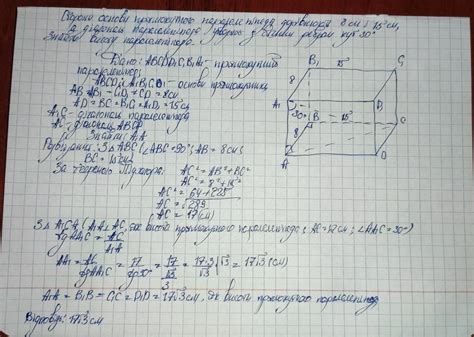 Сторони основи прямокутного паралелепіпеда дорівнюють 8 см і 15 см,
а діагональ паралелепіпеда утворює з бічним ребром кут 30°
Знайти висоту паралелепіпеда.
Дано: ABCDA₁B₁C₁D₁ - прямокутний
паралелепіпед
ABCD і A₁B₁C₁D₁ - основи прямокутники
AB = A₁B₁ = C₁D₁ = CD = 8 см
AD = BC = B₁C₁ = A₁D₁ = 15 см
A₁C - діагональ паралелепіпеда
AC - діагональ ABCD
Знайти: A₁A
Розв'язання: З ΔABC (∠ABC = 90°; AB = 8 см;
BC = 15 см)
За теоремою Піфагора: AC² = AB² + BC²
AC² = 8² + 15²
AC² = 64 + 225
AC = √289
AC = 17 (см)
З Δ A₁CA (A₁A ⊥ AC, як висота прямокутного паралелепіпеда; AC = 17 см; ∠AA₁C = 30°)
tg AA₁C = AC / A₁A
AA₁ = AC / tg AA₁C = 17 / tg 30° = 17 / √3/3 = 17·3 / √3 = 17√3 (см)
A₁A = B₁B = C₁C = D₁D = 17√3 см, як висоти прямокутного паралелепіпеда
Відповідь: 17√3 см
B₁ 15 C₁
8 8
A₁ D₁
30° B 15 C
8
A D